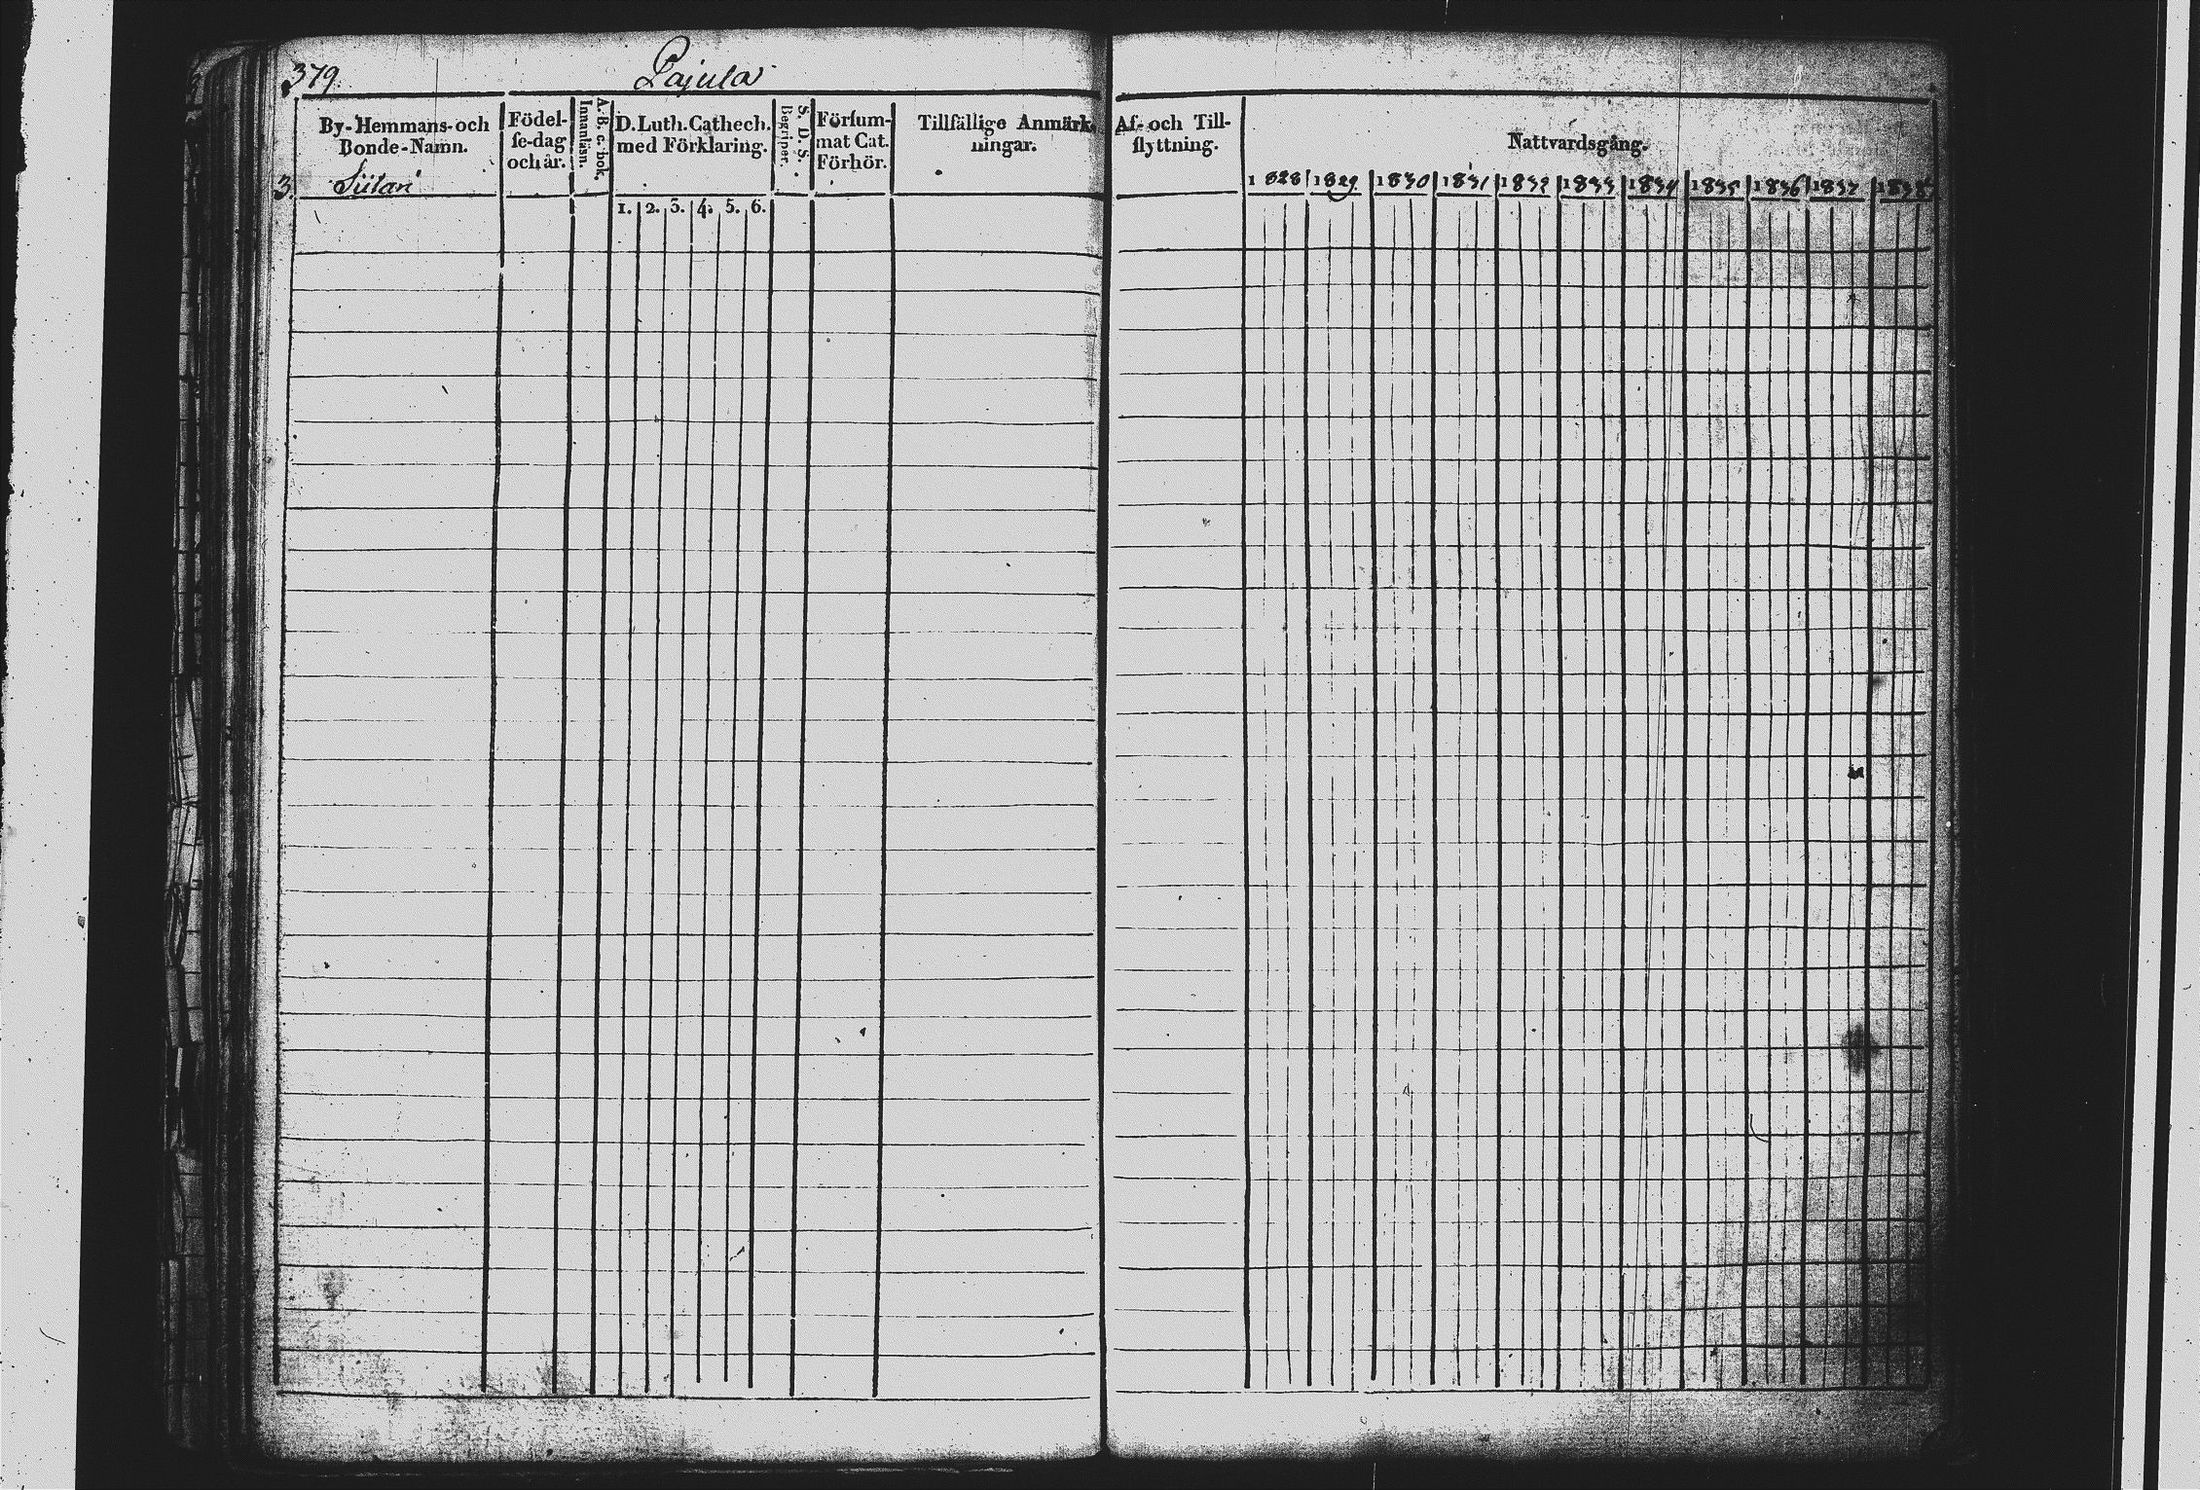 379.
Pajula
By-Hemmans-och
Bonde-Namn.
3. Siilari
Födel-
se-dag
och år.
A. B. c. bok.
Innanläsn.
D. Luth. Cathech.
med Förklaring.
1. 2. 3. 4. 5. 6.
S. D. S.
Begriper.
Försum-
mat Cat.
Förhör.
Tillfällige Anmärk-
ningar.
Af- och Till-
flyttning.
Nattvardsgång.
1828 1829 1830 1831 1832 1833 1834 1835 1836 1837 1838